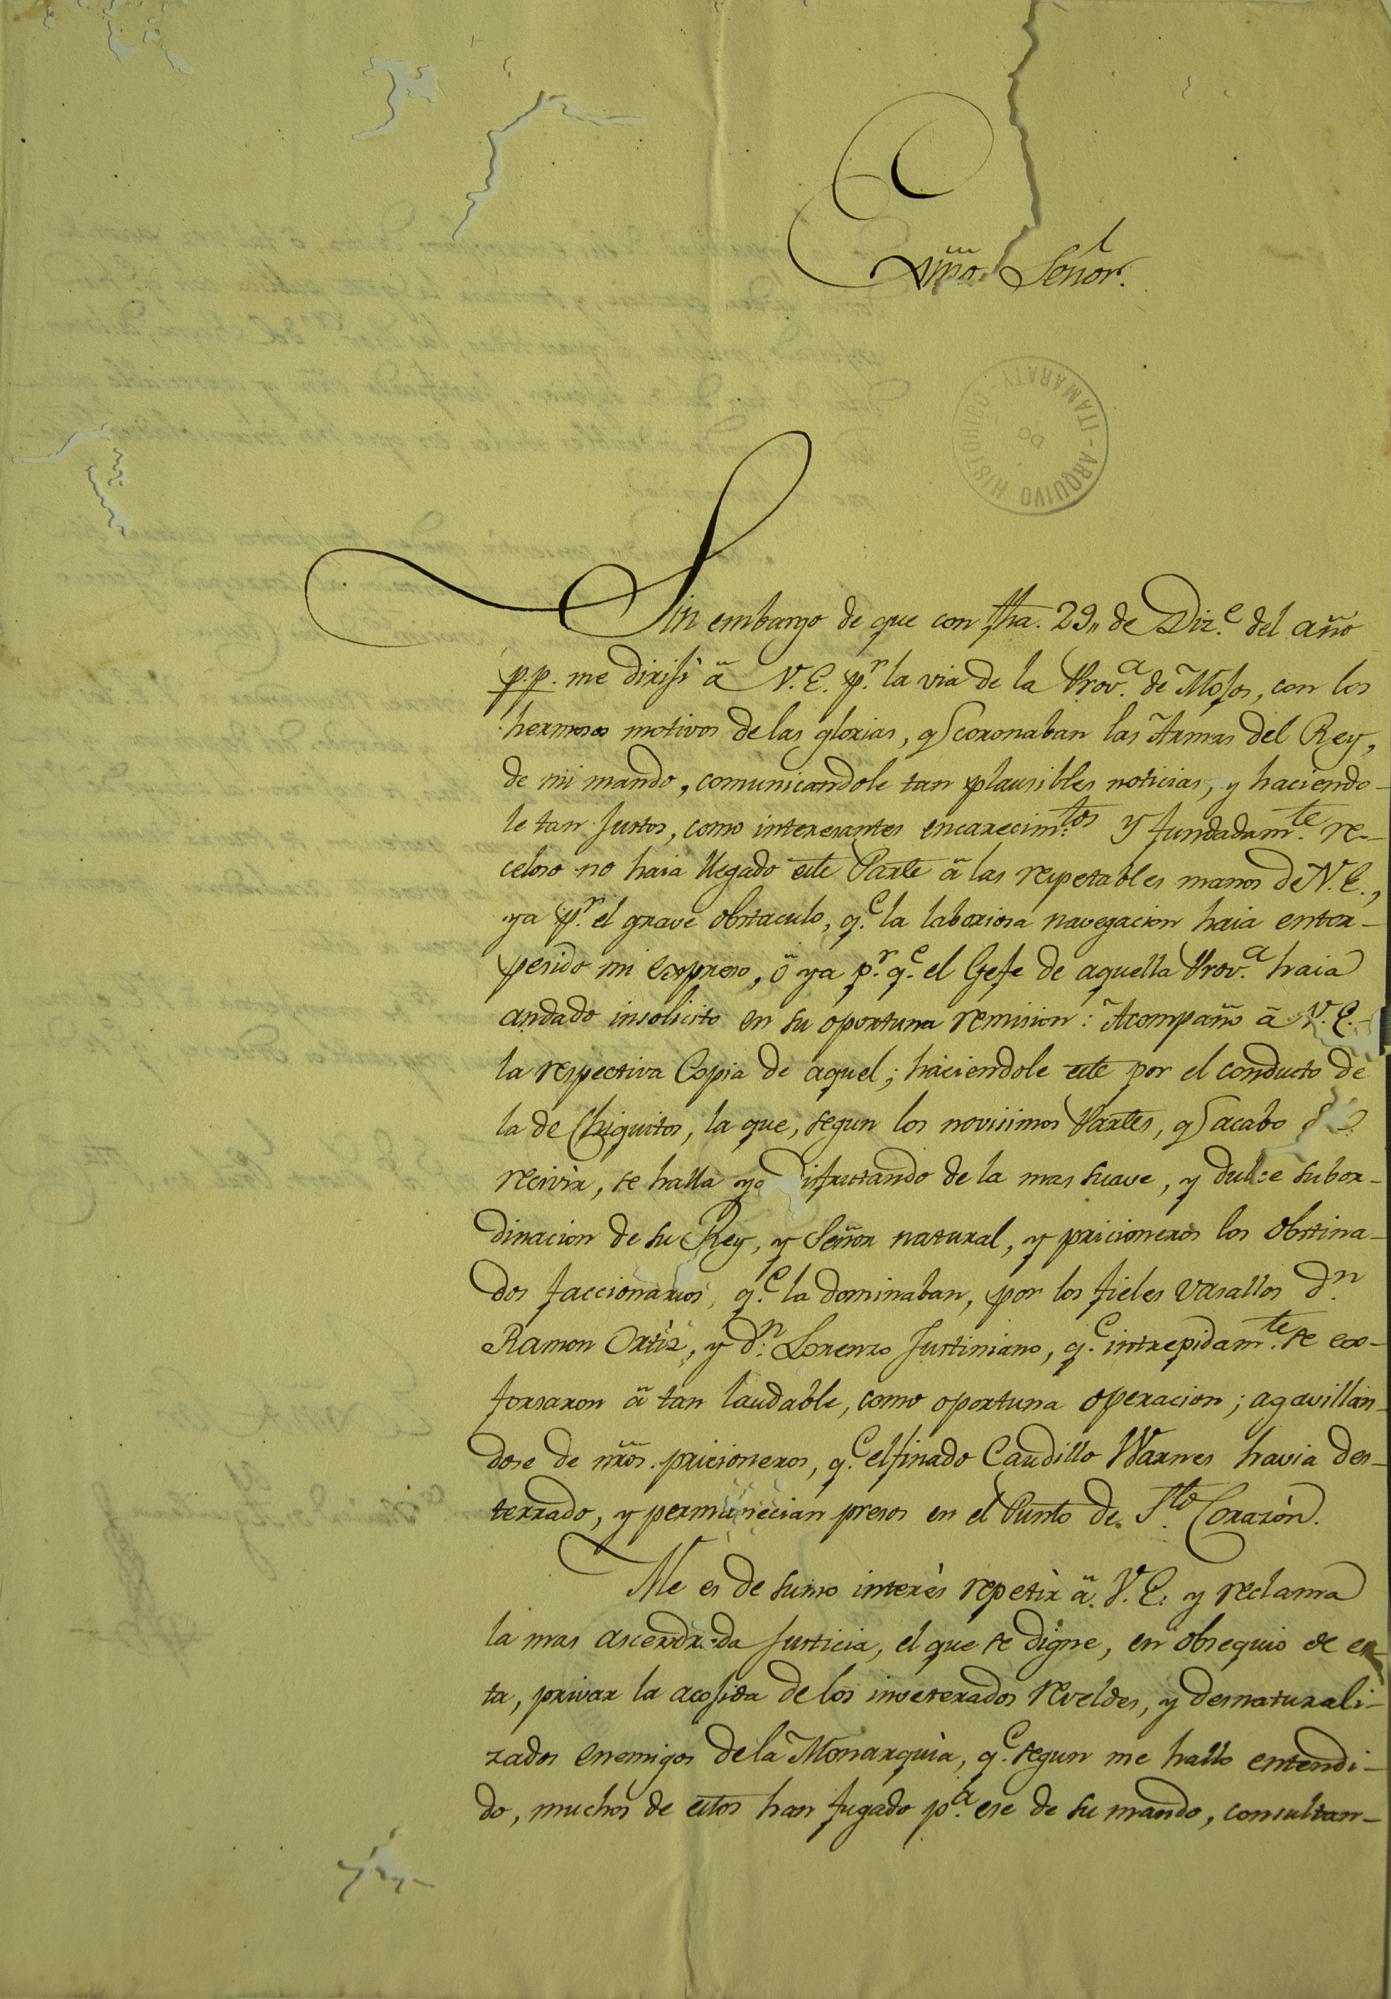 Exmo. Señor.
ARQUIVO HISTORICO DO ITAMARATY
Sin embargo de que con fha. 29,, de Diz.e del año
p.p. me dirijì â V.E. p.r la via de la Prov.a de Mojos, con los
hermosos motivos de las glorias, q coronaban las Armas del Rey,
de mi mando, comunicandole tan plausibles noticias, y haciendo-
le tan justos, como interesantes encarecim.tos y fundadam.te re-
celoso no haia llegado este Parte â las respetables manos de V.E.,
ya p.r el grave obstaculo, q.e la laboriosa navegacion haia entor-
pesido mi expreso, ô ya p.r q.e el Gefe de aquella Prov.a haia
andado insolicito en su oportuna remision: Acompaño â V.E.
la respectiva Copia de aquel; haciendole este por el conducto de
la de Chiquitos, la que, segun los novisimos Partes, q acabo de
recivìr, se halla ya disfrutando de la mas suave, y dulce subor-
dinacion de su Rey, y Señor natural, y pricioneros los obstina-
dos faccionarios, q.e la dominaban, por los fieles vasallos d.n
Ramon Ortìz, y d.n Lorenzo Justiniano, q.e intrepidam.te se ex-
forsaron â tan laudable, como oportuna operacion; agavillan-
dose de nros. pricioneros, q.e el finado Caudillo Warnes havia des-
terrado, y permanecian presos en el Punto de S.to Corazòn.
Me es de sumo interès repetìr â V.E. y reclama
la mas ascendrada Justicia, el que se digne, en obsequio de es-
ta, privar la acojida de los inveterados reveldes, y desnaturali-
zados enemigos de la Monarquìa, q.e segun me hallo entendi-
do, muchos de estos han fugado p.a ese de su mando, consultan-